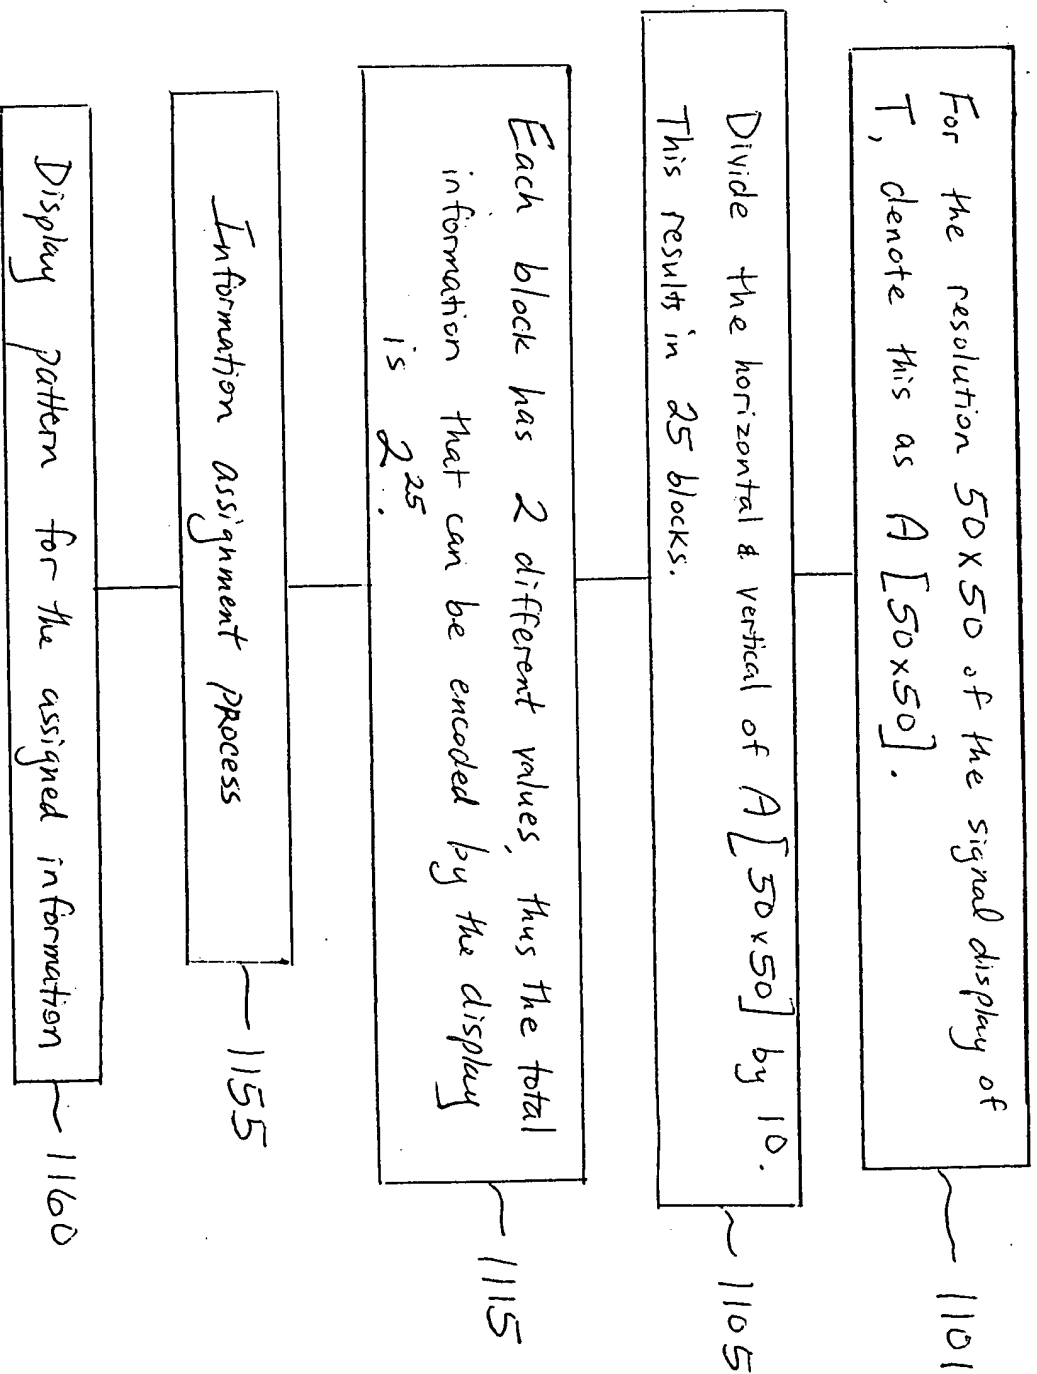 For the resolution 50 x 50 of the signal display of
T, denote this as A [50x50].
1101
Divide the horizontal & vertical of A [50x50] by 10.
This results in 25 blocks.
1105
Each block has 2 different values, thus the total
information that can be encoded by the display
is 2^25.
1115
Information assignment process
1155
Display pattern for the assigned information
1160